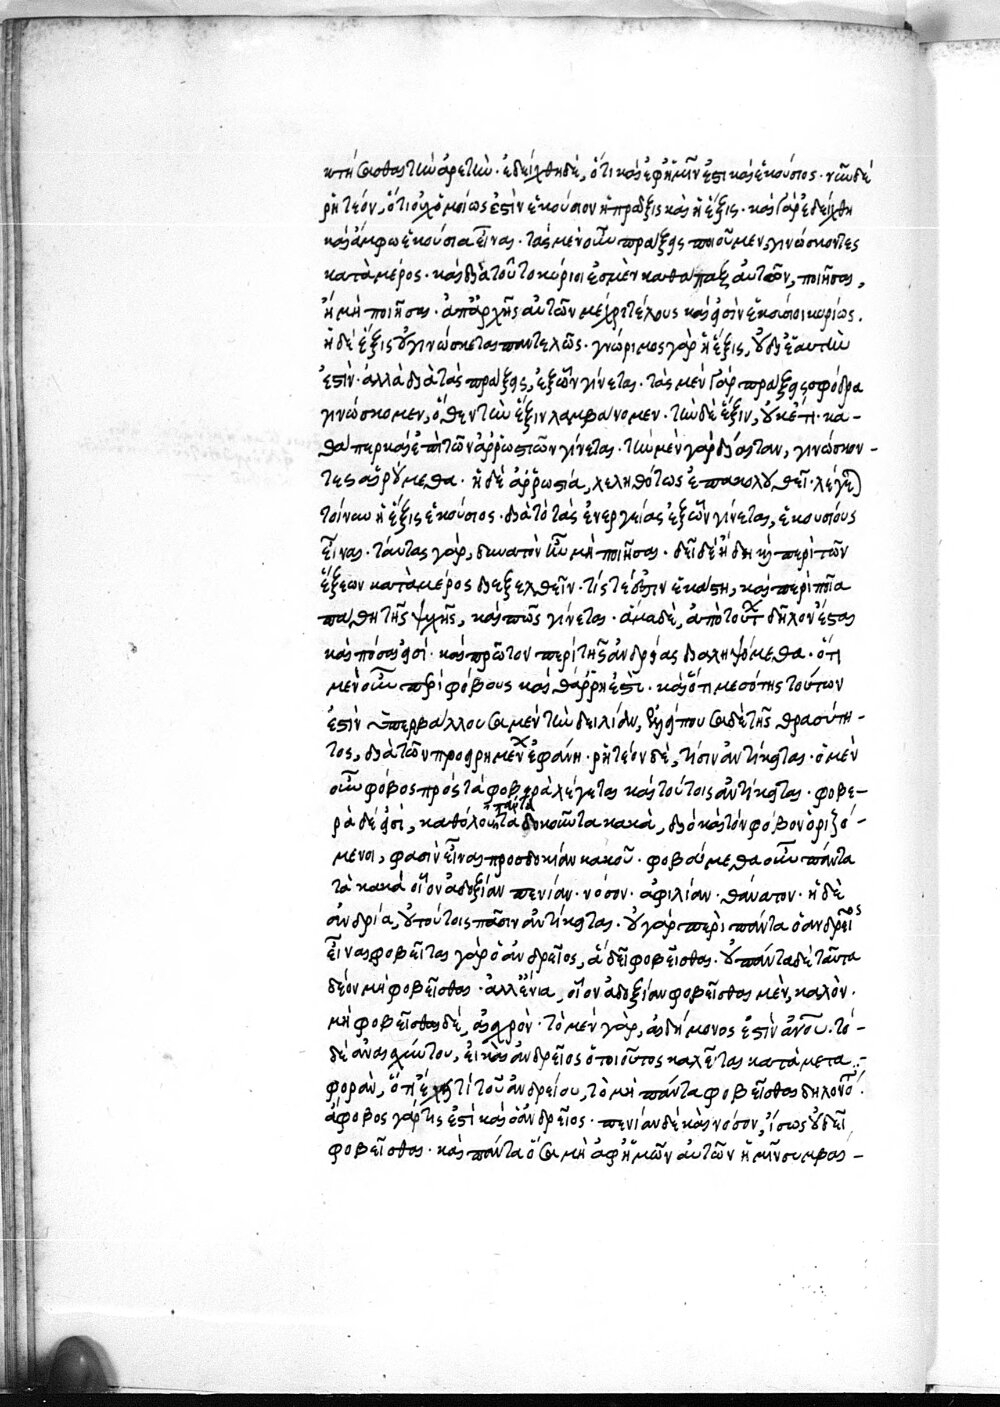 κτήσασθαι τὴν ἀρετήν· ἐδείχθη δὲ, ὅτι καὶ ἐφ' ἡμῖν ἐστι καὶ ἑκούσιος· νῦν δὲ
ῥητέον, ὅτι οὐχ ὁμοίως ἐστὶν ἑκούσιον ἡ πρᾶξις καὶ ἡ ἕξις· καὶ γὰρ ἐδείχθη
καὶ ἄμφω ἑκούσια εἶναι· τὰς μὲν οὖν πράξεις ποιοῦμεν, γινώσκοντες
κατὰ μέρος· καὶ διὰ τοῦτο κύριοι ἐσμὲν καθάπαξ αὐτῶν, ποιῆσαι,
ἢ μὴ ποιῆσαι· ἀπ' ἀρχῆς αὐτῶν μέχρι τέλους καὶ εἰσὶν ἑκούσιοι κυρίως.
ἡ δὲ ἕξις οὐ γινώσκεται παντελῶς· γνώριμος γὰρ ἡ ἕξις, οὐ δι' ἑαυτήν
ἐστιν· ἀλλὰ διὰ τὰς πράξεις, ἐξ ὧν γίνεται· τὰς μὲν γὰρ πράξεις σφόδρα
γινώσκομεν, ὅθεν τὴν ἕξιν λαμβάνομεν· τὴν δὲ ἕξιν, οὐκέτι· κα-
θάπερ καὶ ἐπὶ τῶν ἀρρωστιῶν γίνεται· τὴν μὲν γὰρ δίαιταν, γινώσκον-
τες αἱρούμεθα· ἡ δὲ ἀρρωστία, λεληθότως ἐπακολουθεῖ· λέγεται
τοίνυν ἡ ἕξις ἑκούσιος· διὰ τὸ τὰς ἐνεργείας ἐξ ὧν γίνεται, ἑκουσίους
εἶναι· ταύτας γὰρ, δυνατὸν ἦν μὴ ποιῆσαι· δεῖ δὲ ἤδη καὶ περὶ τῶν
ἕξεων κατὰ μέρος διεξελθεῖν· τίς τέ ἐστιν ἑκάστη, καὶ περὶ ποῖα
πάθη τῆς ψυχῆς, καὶ πῶς γίνεται· ἅμα δὲ, ἀπὸ τούτου δῆλον ἔσται
καὶ πόσαι εἰσί· καὶ πρῶτον περὶ τῆς ἀνδρείας διαληψόμεθα· ὅτι
μὲν οὖν περὶ φόβους καὶ θάρρη ἐστὶ· καὶ ὅτι μεσότης τούτων
ἐστὶν ὑπερβάλλουσα μὲν τὴν δειλίαν, ἐλλείπουσα δὲ τῆς θρασύτη-
τος, διὰ τῶν προειρημένων ἐφάνη· ῥητέον δὲ, τίσιν ἀντίκειται· ὁ μὲν
οὖν φόβος πρὸς τὰ φοβερὰ λέγεται καὶ τούτοις ἀντίκειται· φοβε-
ρὰ δέ εἰσι, καθόλου πάντα τὰ δοκοῦντα κακὰ, διὸ καὶ τὸν φόβον ὁριζό-
μενοι, φασὶν εἶναι προσδοκίαν κακοῦ· φοβούμεθα οὖν πάντα
τὰ κακὰ οἷον ἀδοξίαν πενίαν· νόσον· ἀφιλίαν· θάνατον· ἡ δὲ
ἀνδρία, οὐ τούτοις πᾶσιν ἀντίκειται· οὐ γὰρ περὶ πάντα ὁ ἀνδρεῖος
εἶναι φοβεῖται γὰρ ὁ ἀνδρεῖος, ἃ δεῖ φοβεῖσθαι· οὐ πάντα δὲ ταῦτα
δέον μὴ φοβεῖσθαι· ἀλλ' ἔνια, οἷον ἀδοξίαν φοβεῖσθαι μὲν, καλὸν·
μὴ φοβεῖσθαι δὲ, αἰσχρὸν· τὸ μὲν γὰρ, αἰδήμονος ἐστὶν ἀνθρώπου· τὸ
δὲ ἀναισχύντου, εἰ καὶ ἀνδρεῖος ὁ τοιοῦτος καλεῖται κατὰ μετα-
φορὰν, ὅτι ἔχει τι τοῦ ἀνδρείου, τὸ μὴ πάντα φοβεῖσθαι δηλονότι·
ἄφοβος γάρ τις ἐστὶ καὶ ὁ ἀνδρεῖος· πενίαν δὲ καὶ νόσον, ἴσως οὐ δεῖ
φοβεῖσθαι· καὶ πάντα ὅσα μὴ ἀφ' ἡμῶν αὐτῶν ἡμῖν συμβαί-